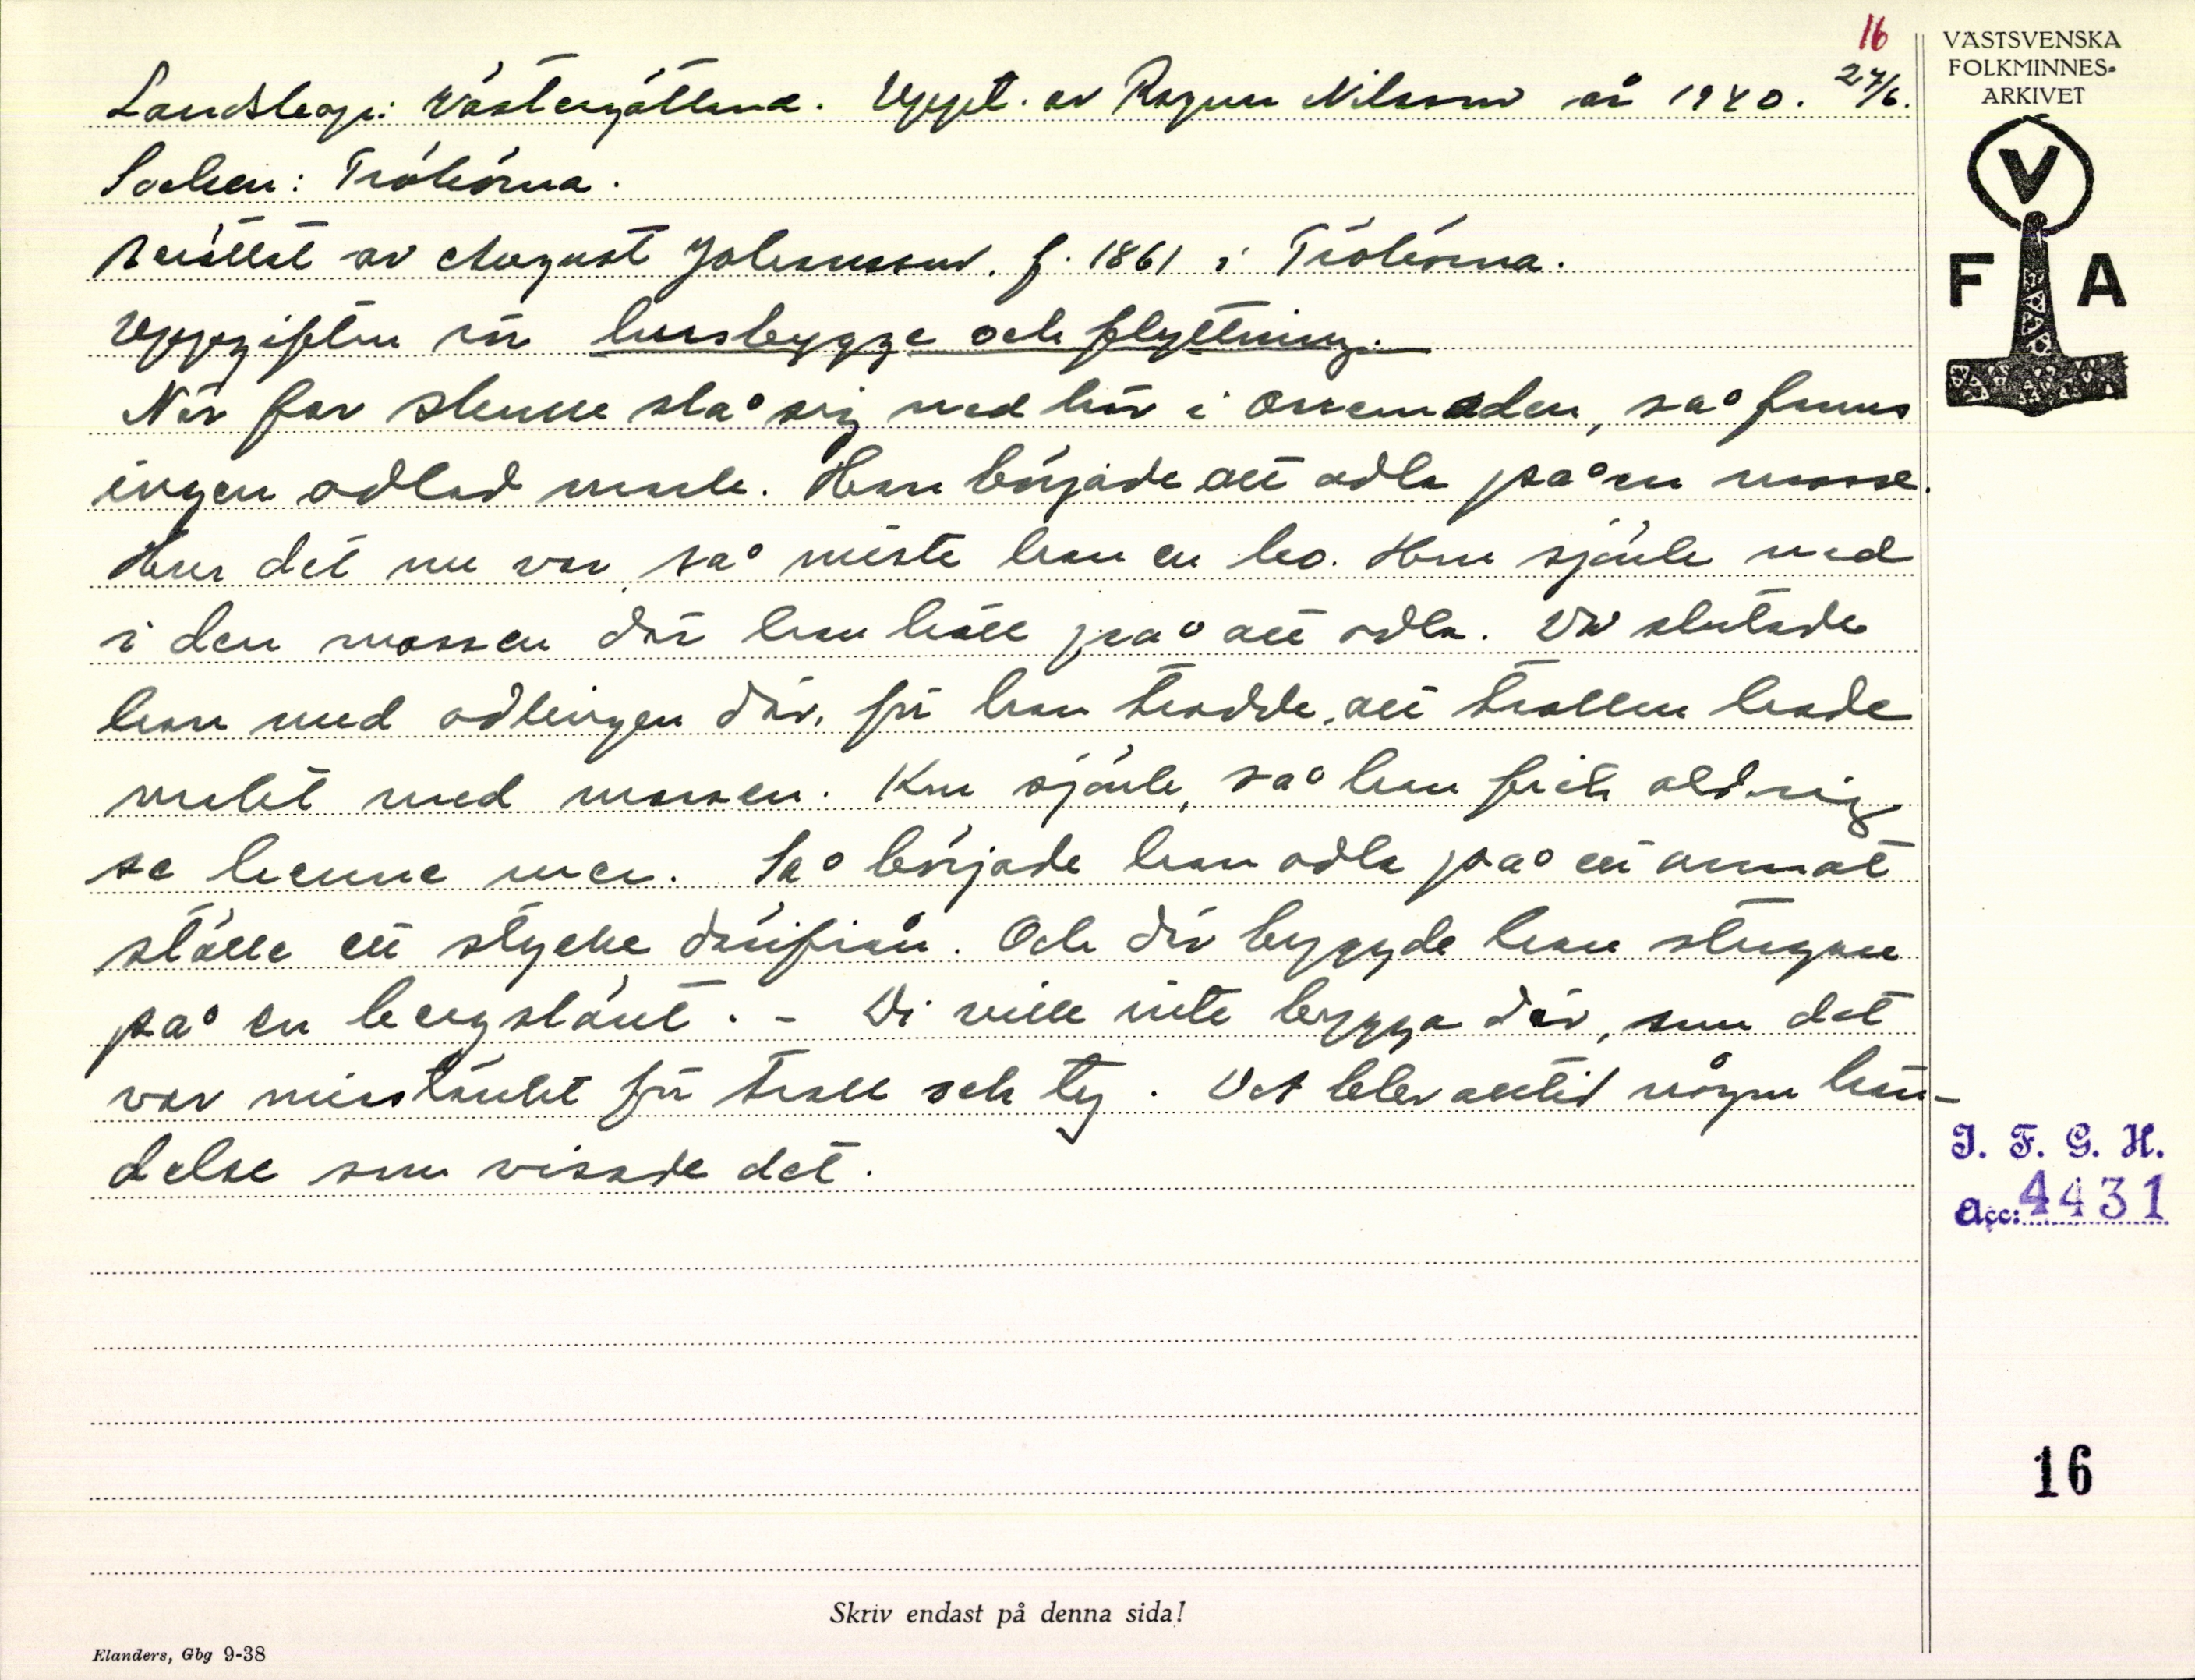 16
VÄSTSVENSKA
FOLKMINNES-
ARKIVET
V
F A
Landskap: Västergötland. Uppt. av Ragnar Nilsson år 1940. 27/6.
Socken: Trökörna.
Berättat av August Johansson. f. 1861 i Trökörna.
Uppgiften rör husbygge och flyttning.
När far skulle slå sig ned här i Orremaden, så fanns
ingen odlad mark. Han började att odla på en mosse.
Hur det nu var, så miste han en ko. Hon sjönk ned
i den mossen där han höll på att odla. Då slutade
han med odlingen där, för han trodde, att trollen hade
makt med mossen. Kon sjönk, så han fick aldrig
se henne mer. Så började han odla på ett annat
ställe ett stycke därifrån. Och där byggde han stugan
på en bergslänt. - Di ville inte bygga där, som det
var misstänkt för troll och tyg. Det blev alltid någon hän-
delse som visade det.
I. F. G. H.
Acc: 4431
16
Skriv endast på denna sida!
Elanders, Gbg 9-38